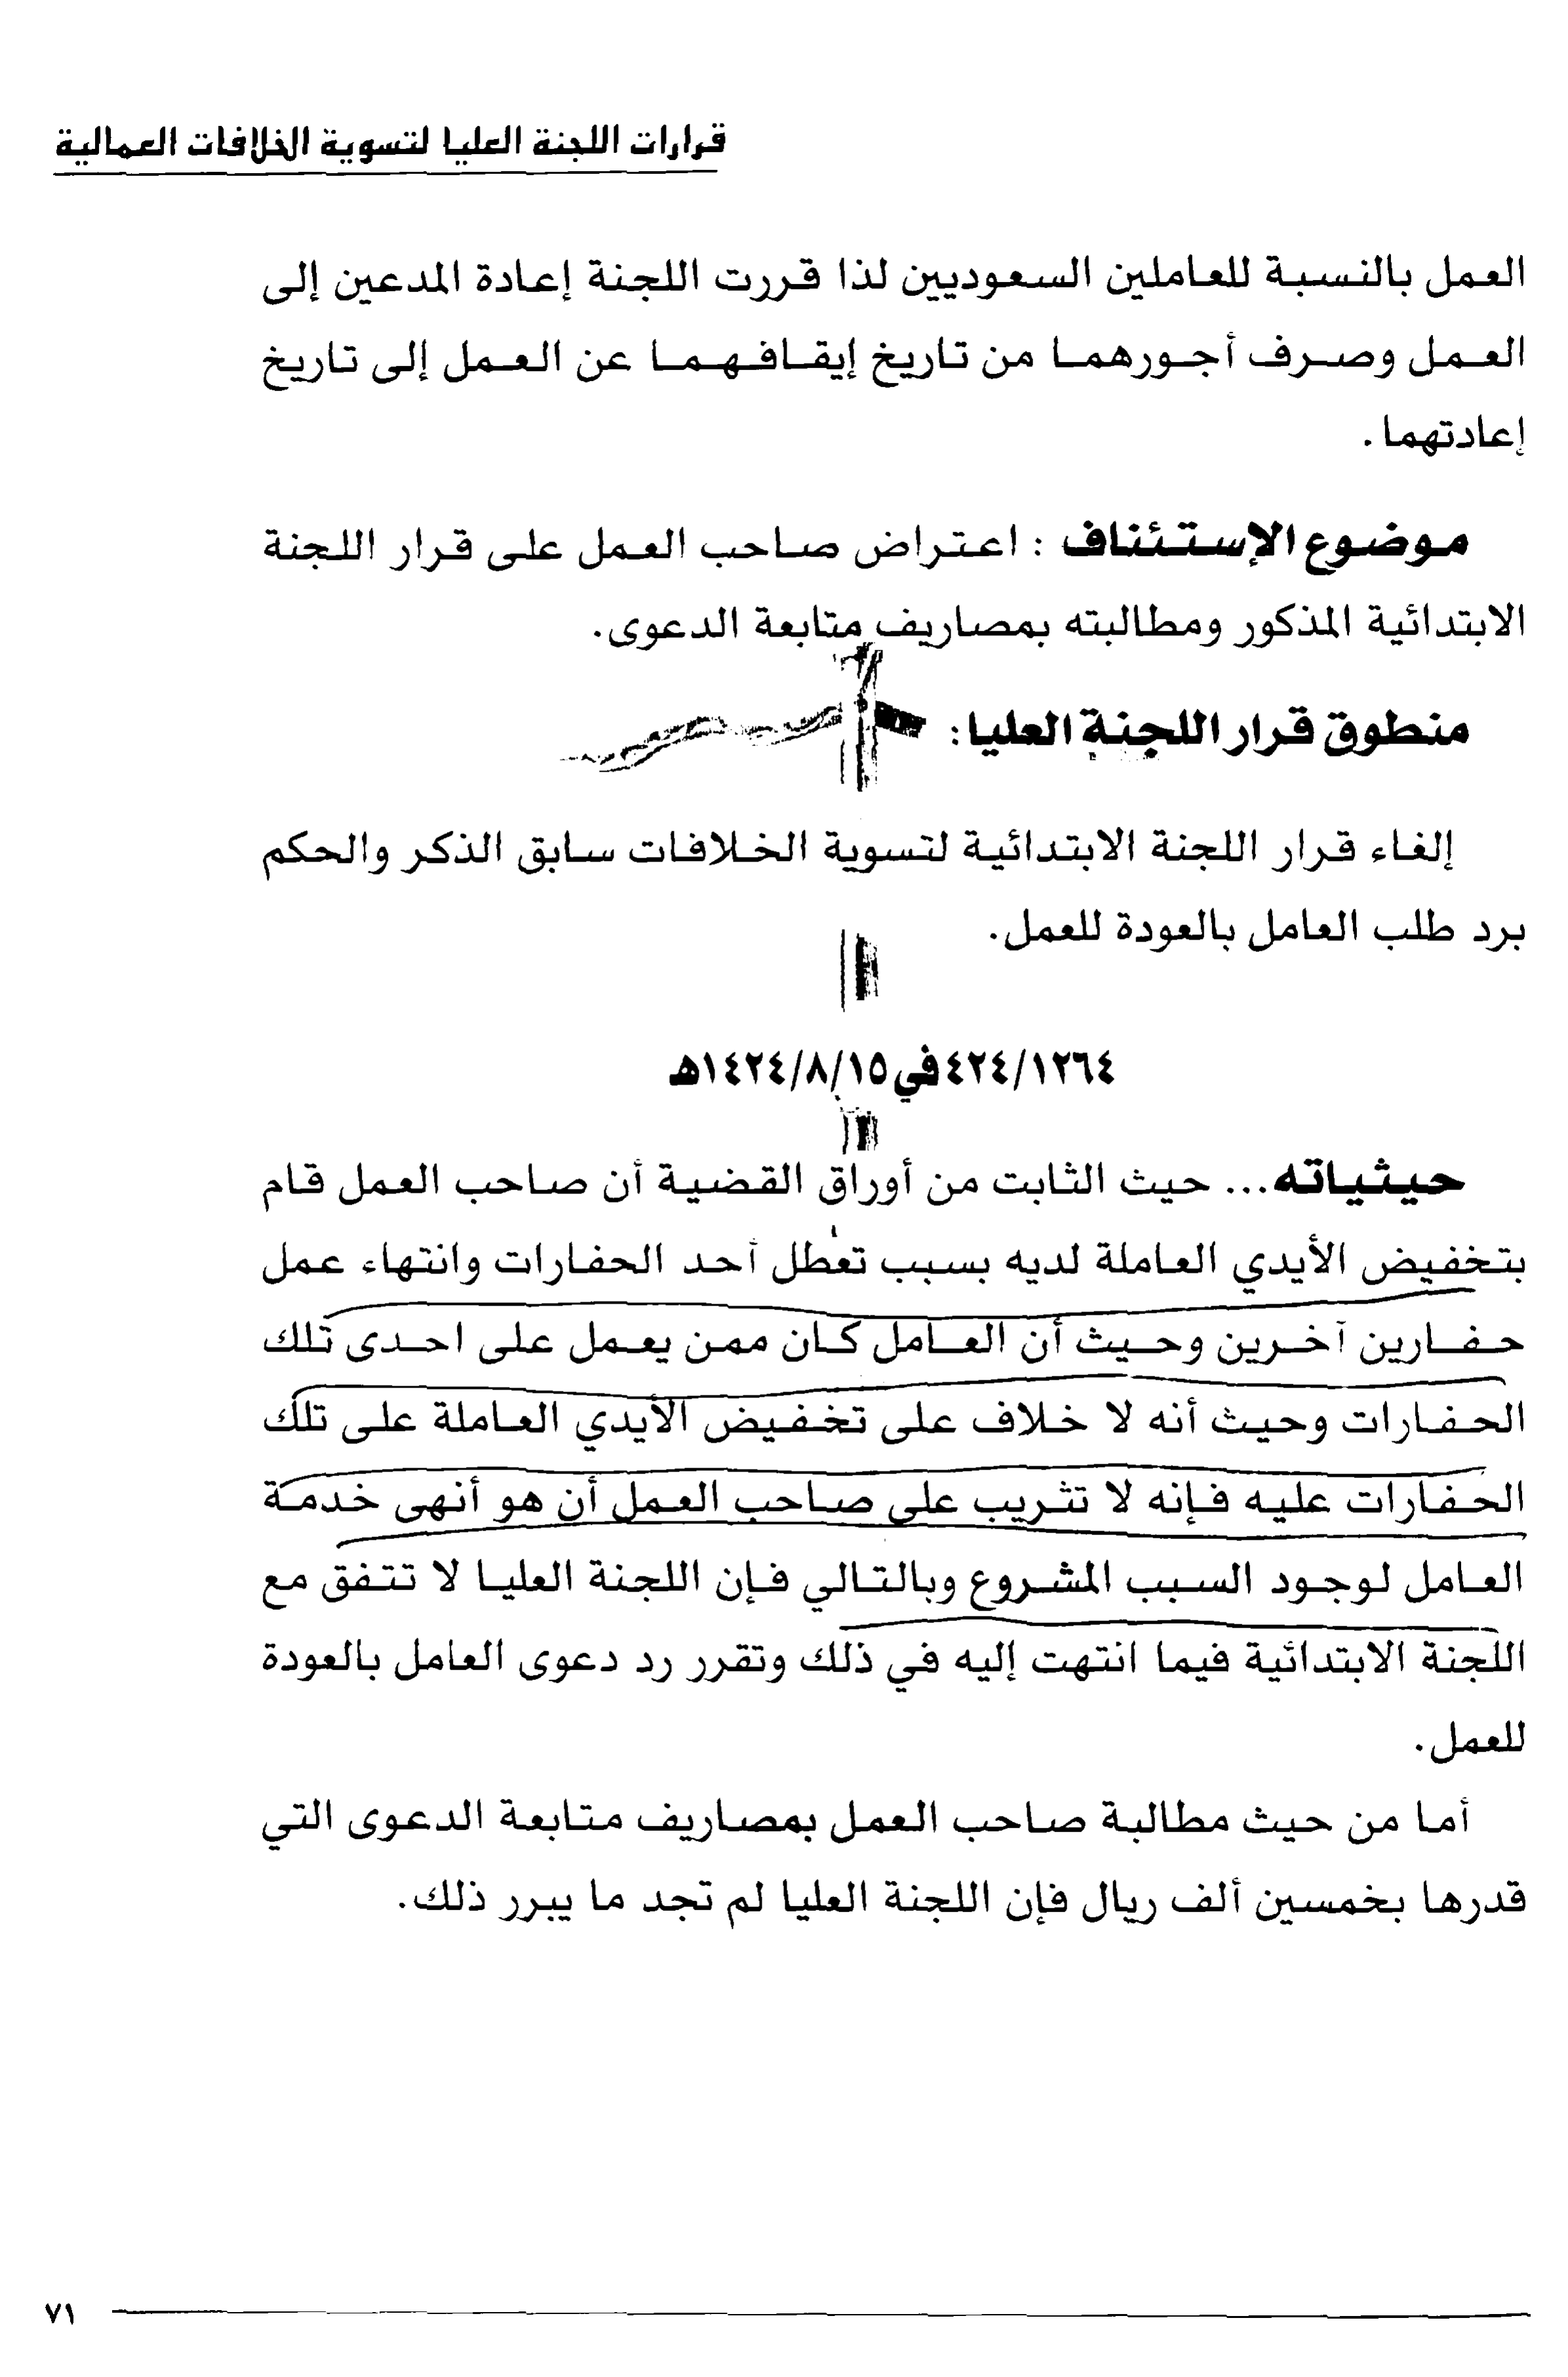 قرارات اللجنة العليا لتسوية الخلافات العمالية
العمل بالنسبة للعاملين السعوديين لذا قررت اللجنة إعادة المدعين إلى
العمل وصرف أجورهما من تاريخ إيقافهما عن العمل إلى تاريخ
إعادتهما .
موضوع الإستئناف : اعتراض صاحب العمل على قرار اللجنة
الابتدائية المذكور ومطالبته بمصاريف متابعة الدعوى.
منطوق قرار اللجنة العليا :
إلغاء قرار اللجنة الابتدائية لتسوية الخلافات سابق الذكر والحكم
برد طلب العامل بالعودة للعمل.
٤٢٤/١٢٦٤ في ١٤٢٤/٨/١٥هـ
حيثياته... حيث الثابت من أوراق القضية أن صاحب العمل قام
بتخفيض الأيدي العاملة لديه بسبب تعطل أحد الحفارات وانتهاء عمل
حفارين آخرين وحيث أن العامل كان ممن يعمل على احدى تلك
الحفارات وحيث أنه لا خلاف على تخفيض الأيدي العاملة على تلك
الحفارات عليه فإنه لا تثريب على صاحب العمل أن هو أنهى خدمة
العامل لوجود السبب المشروع وبالتالي فإن اللجنة العليا لا تتفق مع
اللجنة الابتدائية فيما انتهت إليه في ذلك وتقرر رد دعوى العامل بالعودة
للعمل.
أما من حيث مطالبة صاحب العمل بمصاريف متابعة الدعوى التي
قدرها بخمسين ألف ريال فإن اللجنة العليا لم تجد ما يبرر ذلك.
٧١